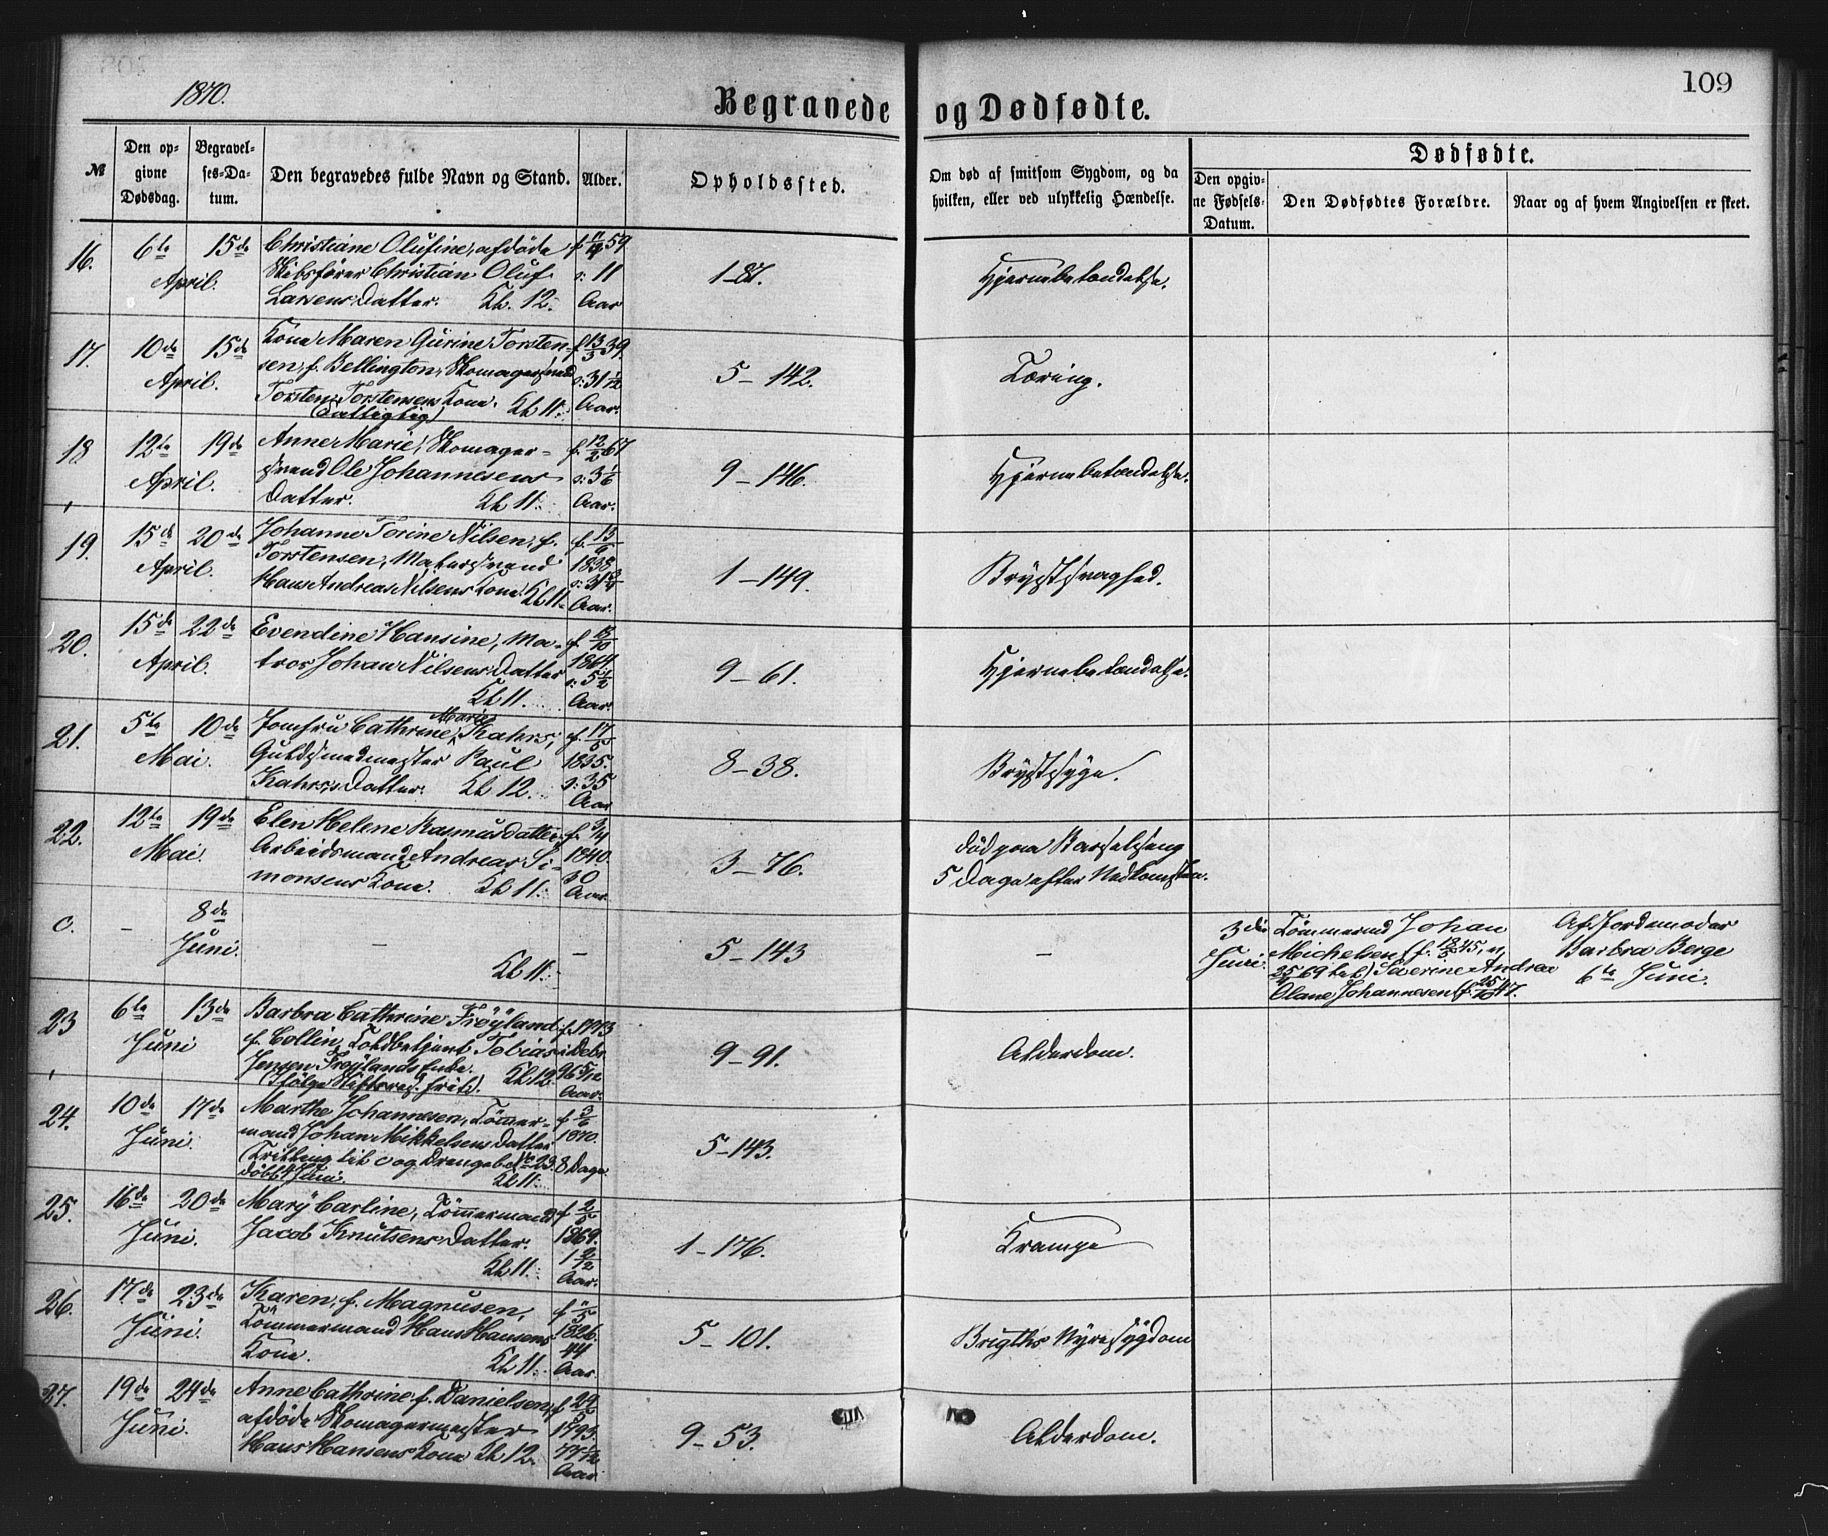 109
1870.
Begravede og Dødfødte.
№
Den opgivne Dødsdag.
Begravelses-Datum.
Den begravedes fulde Navn og Stand.
Alder.
Opholdssted.
Om død af smitsom Sygdom, og da hvilken, eller ved ulykkelig Hændelse.
Dødfødte.
Den opgivne Fødsels-Datum.
Den Dødfødtes Forældre.
Naar og af hvem Angivelsen er skeet.
16. 6te 15de April.
Christiane Olufine, afdøde
Skibsfører Christian Oluf
Larsens Datter. Kl. 12.
f. 11/4 59
o: 11
Aar
1-87.
Hjernebetændelse.
17. 10de 15de April.
Kone Maren Gurine Torsten-
sen, f. Bellington, Skomagersvend
Torsten Torstensens Kone. Kl 11.
(Fattiglig)
f. 13/3 39.
o: 31 1/12
Aar.
5-142.
Tæring.
18 12te 19de April.
Anne Marie, Skomager-
svend Ole Johannesens
Datter. Kl 11.
f. 12/2 67
o: 3 1/6
Aar.
9-146.
Hjernebetændelse.
19. 15de 20de April.
Johanne Torine Nilsen, f.
Torstensen, Malersvend
Hans Andreas Nilsens Kone. Kl 11.
f. 13/6
1838
o: 31 3/4
Aar.
1-149.
Brystsvaghed.
20. 15de 22de April.
Evendine Hansine, Ma-
tros Johan Nilsens Datter
Kl 11.
f. 13/10
1864.
o: 5 1/2
Aar.
9-61.
Hjernebetændelse.
21. 5te 10de Mai.
Marie
Jomfru Cathrine, Kahrs,
Guldsmedmester Paul
Kahrs's Datter. Kl 12.
f. 17/5
1835.
o: 35
Aar
8-38.
Brystsyge.
22. 12te 19de Mai.
Elen Helene Rasmusdatter,
Arbeidsmand Andreas Si-
monsens Kone. Kl 11.
f. 3/4
1840.
30
Aar
3-76.
Død paa Barselseng
5 Dage efter Nedkomsten.
c. - 8de Juni.
- Kl 11.
-
5-143
-
3die Juni.
Tømmermd Johan
Michelsen (f. 18/5 45,
25/4 69 ) Severine Andrea
Olane Johannesen (f. 25/10 47.
Af Jordemoder
Barbra Berge
6te Juni.
23 6te 13de Juni
Barbra Cathrine Frøÿland
f. Collin, Toldbetjent Tobias
Jensen Frøÿlands Enke. Kl 12.
(Ifølge frit).
f. 1773
i Debr
96 5/12
Aar.
9-91.
Alderdom.
24. 10de 17de Juni.
Marthe Johannesen, Tømmer-
mand Johan Mikkelsens Datter
(Trilling til c og Drengeb. No 23.
døbt 4 Juni. Kl 11.
f. 3/6
1870.
8 Dage.
5-143.
25. 16de 20de Juni.
Marÿ Carline, Tømmermand
Jacob Knutsens Datter.
Kl 11.
f. 2/5
1869.
1 2/12
Aar.
1-176.
Krampe
26. 17de 23de Juni.
Karen, f. Magnusen,
Tømmermand Hans Hansens
Kone. Kl 11.
f. 11/5
1826.
44
Aar
5-101.
Brigths Nyresygdom
27. 19de 24de Juni.
Anne Cathrine f. Danielsen,
afdøde Skomagermester
Hans Hansens Kone Kl 12.
f. 22/5
1793.
77 1/12
Aar
9-53.
Alderdom.